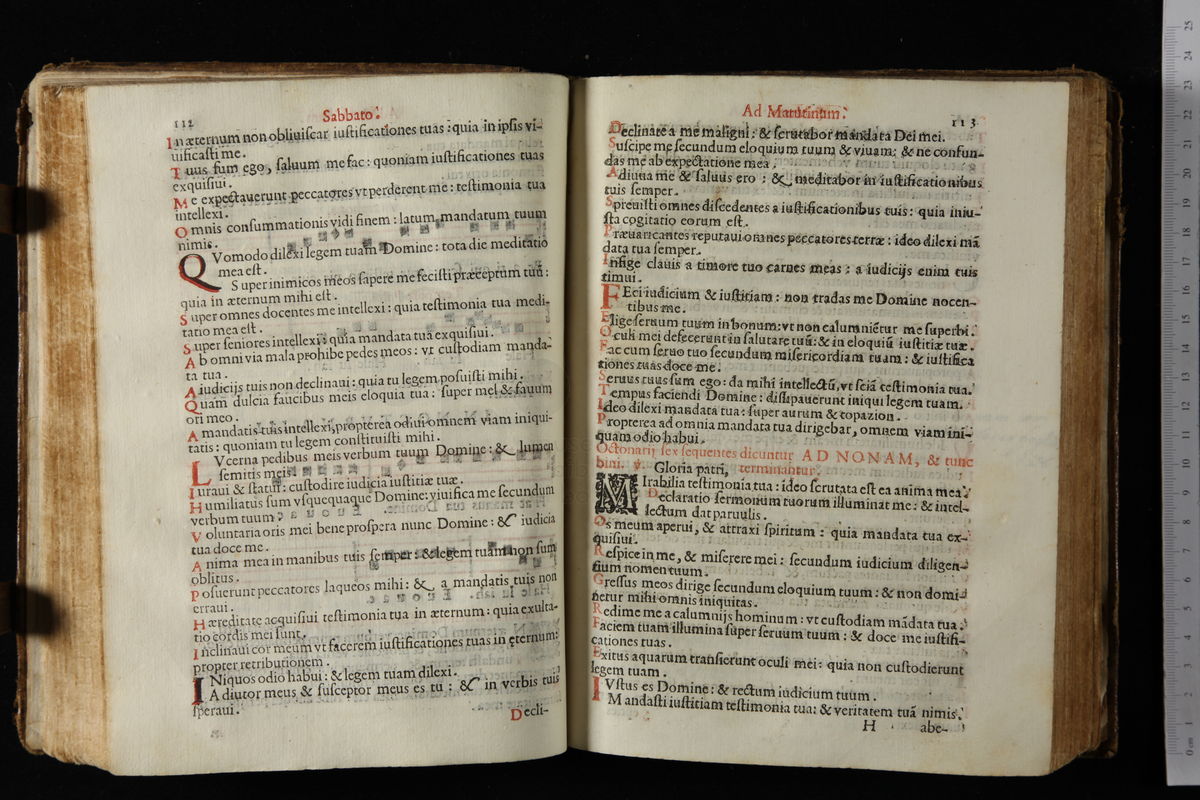 112
Sabbato.
In æternum non obliuiscar iustificationes tuas: quia in ipsis vi-
uificasti me.
Tuus sum ego, saluum me fac: quoniam iustificationes tuas
exquisiui.
Me expectauerunt peccatores vt perderent me: testimonia tua
intellexi.
Omnis consummationis vidi finem: latum mandatum tuum
nimis.
QVomodo dilexi legem tuam Domine: tota die meditatio
mea est.
Super inimicos meos sapere me fecisti præceptum tuū:
quia in æternum mihi est.
Super omnes docentes me intellexi: quia testimonia tua medi-
tatio mea est.
Super seniores intellexi: quia mandata tua exquisiui.
Ab omni via mala prohibe pedes meos: vt custodiam manda-
ta tua.
A iudicijs tuis non declinaui: quia tu legem posuisti mihi.
Quàm dulcia faucibus meis eloquia tua: super mel & fauum
ori meo.
A mandatis tuis intellexi, propterea odiui omnem viam iniqui-
tatis: quoniam tu legem constituisti mihi.
LVcerna pedibus meis verbum tuum Domine: & lumen
semitis meis.
Iuraui & statui: custodire iudicia iustitiæ tuæ.
Humiliatus sum vsquequaque Domine: viuifica me secundum
verbum tuum.
Voluntaria oris mei bene prospera nunc Domine: & iudicia
tua doce me.
Anima mea in manibus tuis semper: & legem tuam non sum
oblitus.
Posuerunt peccatores laqueos mihi: & a mandatis tuis non
erraui.
Hæreditate acquisiui testimonia tua in æternum: quia exulta-
tio cordis mei sunt.
Inclinaui cor meum vt facerem iustificationes tuas in ęternum:
propter retributionem.
INiquos odio habui: & legem tuam dilexi.
Adiutor meus & susceptor meus es tu: & in verbis tuis
speraui.
Decli-
Ad Matutinum.
113
Declinate a me maligni: & scrutabor mandata Dei mei.
Suscipe me secundum eloquium tuum & viuam: & ne confun-
das me ab expectatione mea.
Adiuua me & saluus ero: & meditabor in iustificationibus
tuis semper.
Spreuisti omnes discedentes a iustificationibus tuis: quia iniu-
sta cogitatio eorum est.
Præuaricantes reputaui omnes peccatores terræ: ideo dilexi mā
data tua semper.
Infige clauis a timore tuo carnes meas: a iudicijs enim tuis
timui.
FEci iudicium & iustitiam: non tradas me Domine nocen-
tibus me.
Elige seruum tuum in bonum: vt non calumniētur me superbi.
Oculi mei defecerunt in salutare tuū: & in eloquiū iustitiæ tuæ.
Fac cum seruo tuo secundum misericordiam tuam: & iustifica
tiones tuas doce me.
Seruus tuus sum ego: da mihi intellectū, vt sciā testimonia tua.
Tempus faciendi Domine: dissipauerunt iniqui legem tuam.
Ideo dilexi mandata tua: super aurum & topazion.
Propterea ad omnia mandata tua dirigebar, omnem viam ini-
quam odio habui.
Octonarij sex sequentes dicuntur AD NONAM, & tunc
bini. v. Gloria patri, terminantur.
MIrabilia testimonia tua: ideo scrutata est ea anima mea.
Declaratio sermonum tuorum illuminat me: & intel-
lectum dat paruulis.
Os meum aperui, & attraxi spiritum: quia mandata tua ex-
quisiui.
Respice in me, & miserere mei: secundum iudicium diligen-
tium nomen tuum.
Gressus meos dirige secundum eloquium tuum: & non domi-
netur mihi omnis iniquitas.
Redime me a calumnijs hominum: vt custodiam mādata tua.
Faciem tuam illumina super seruum tuum: & doce me iustifi-
cationes tuas.
Exitus aquarum transierunt oculi mei: quia non custodierunt
legem tuam.
IVstus es Domine: & rectum iudicium tuum.
Mandasti iustitiam testimonia tua: & veritatem tuā nimis.
H
abe-